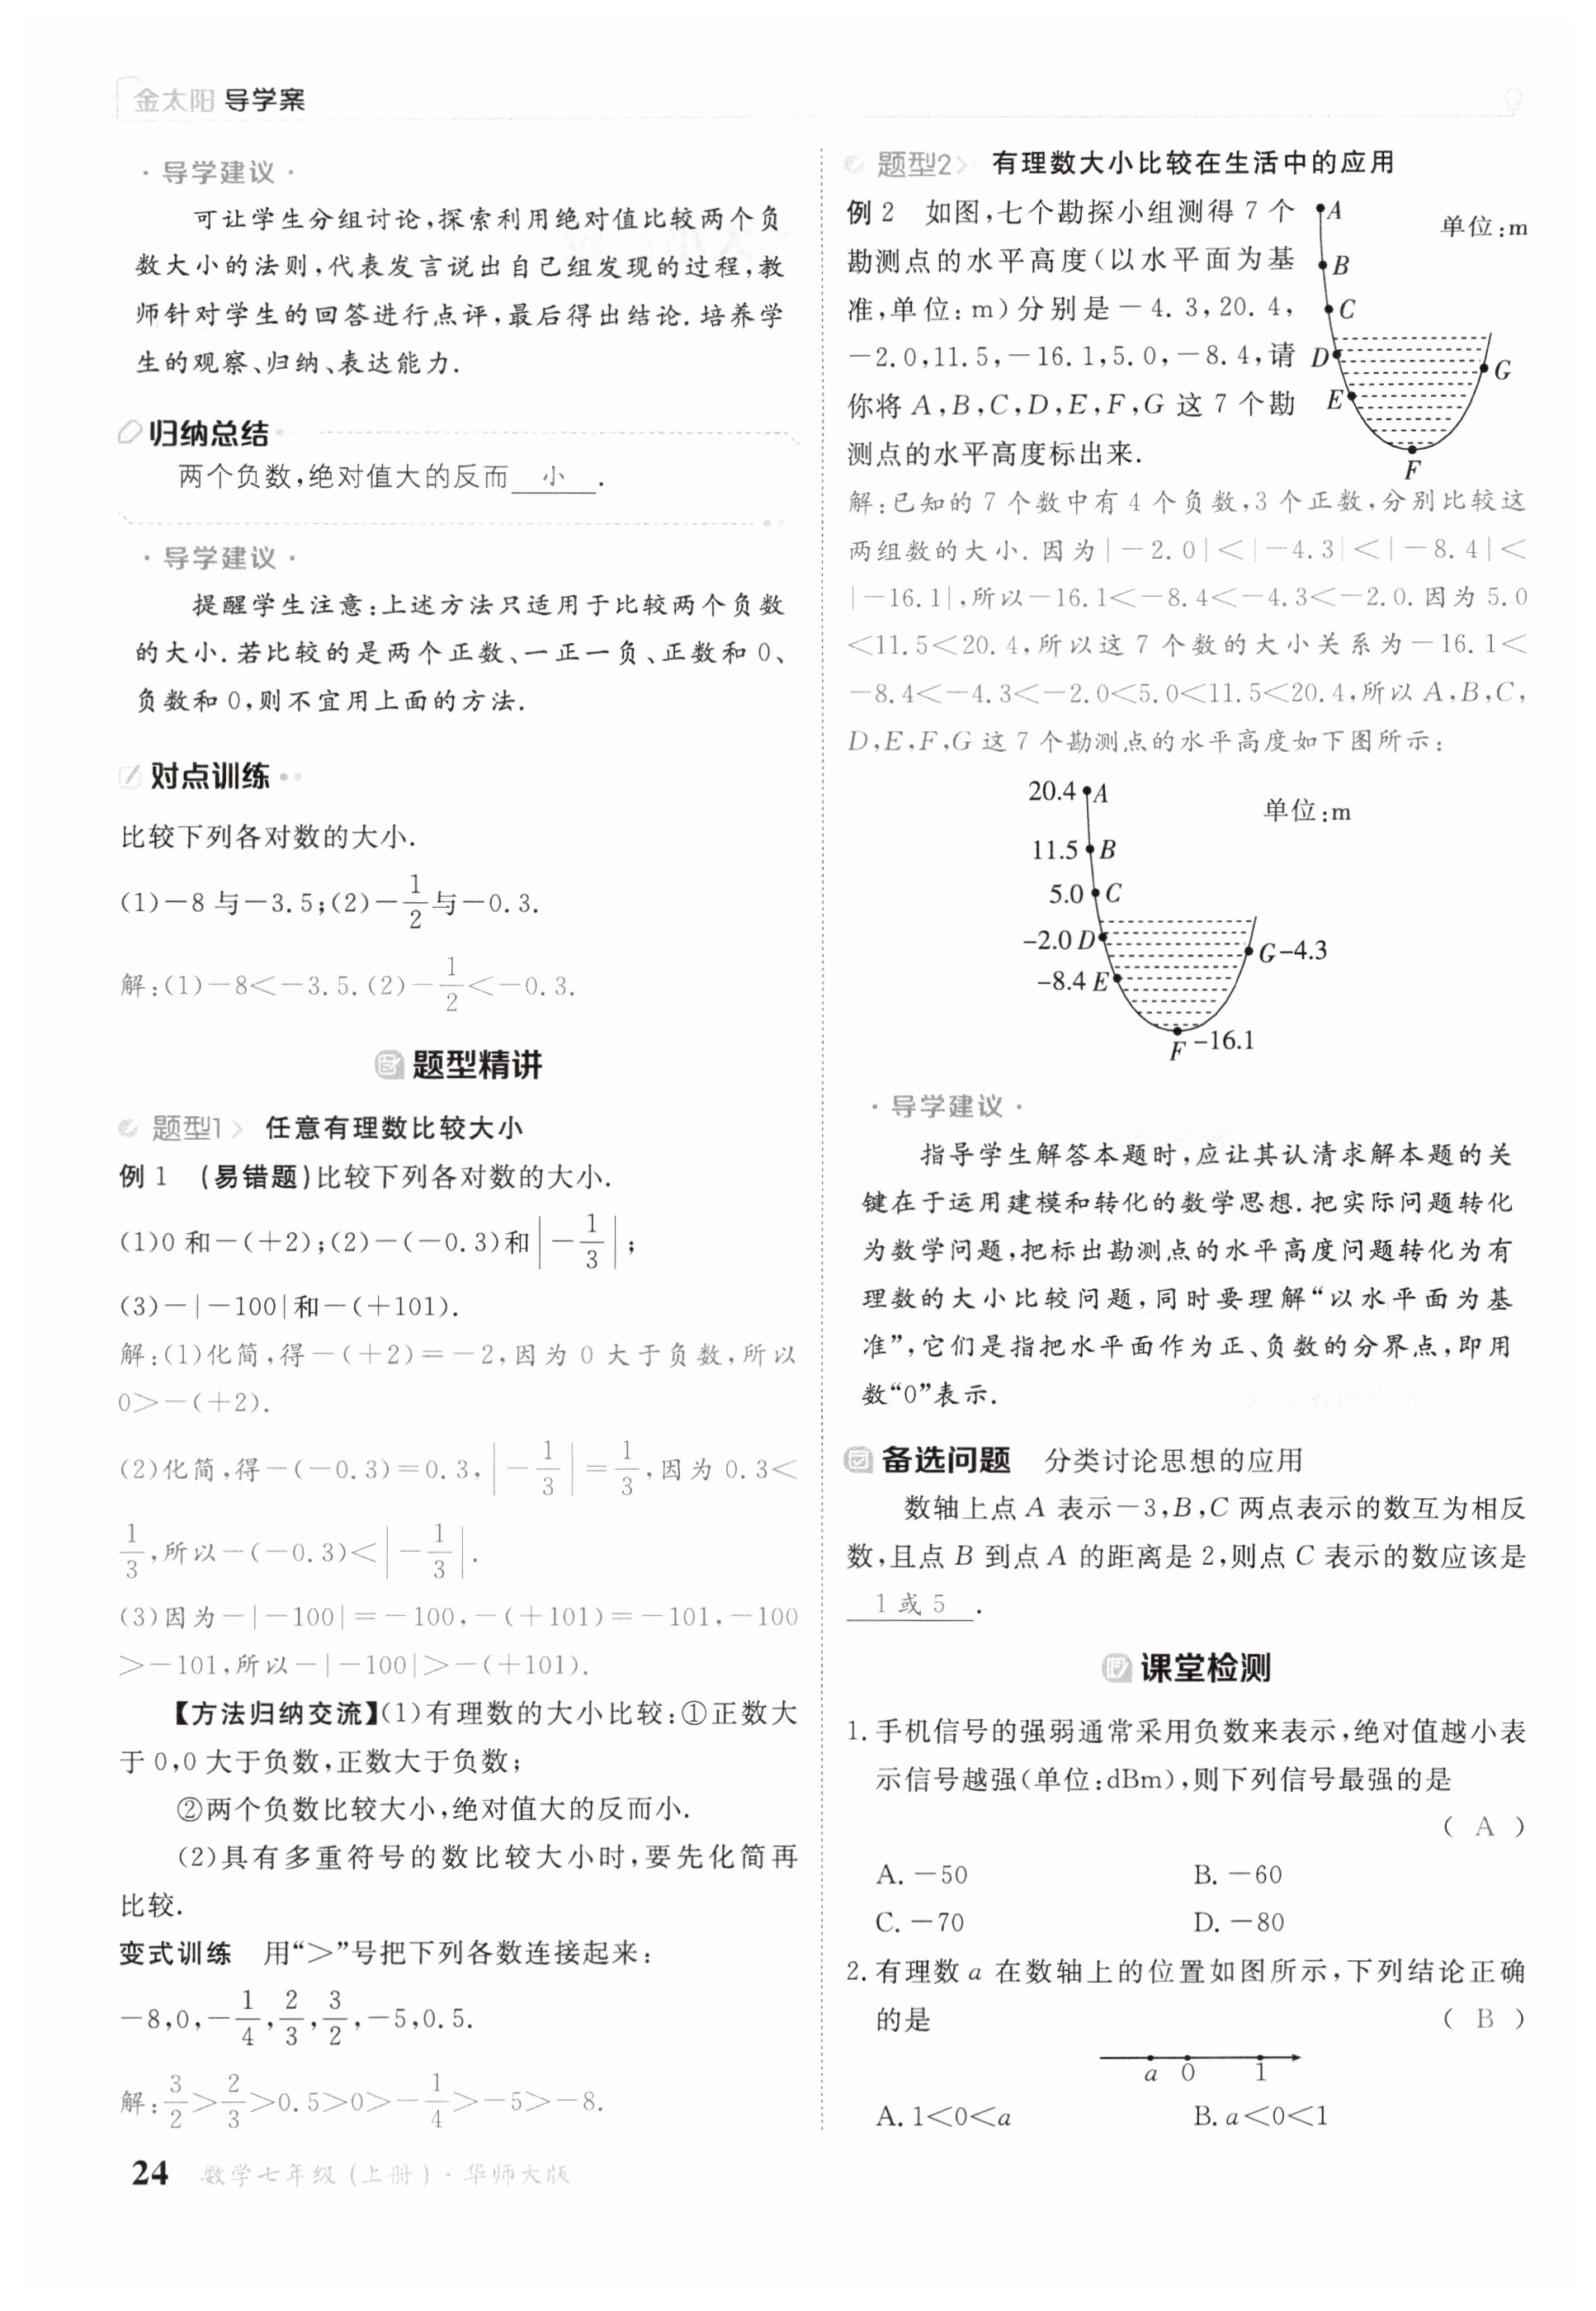 金太阳 导学案
·导学建议·
可让学生分组讨论,探索利用绝对值比较两个负
数大小的法则,代表发言说出自己组发现的过程,教
师针对学生的回答进行点评,最后得出结论.培养学
生的观察、归纳、表达能力.
归纳总结
两个负数,绝对值大的反而 小 .
·导学建议·
提醒学生注意:上述方法只适用于比较两个负数
的大小.若比较的是两个正数、一正一负、正数和 0、
负数和 0,则不宜用上面的方法.
对点训练
比较下列各对数的大小.
(1)−8 与−3.5;(2)−1/2 与−0.3.
解:(1)−8<−3.5.(2)−1/2<−0.3.
题型精讲
题型1 任意有理数比较大小
例 1 (易错题)比较下列各对数的大小.
(1)0 和−(+2);(2)−(−0.3)和|−1/3|;
(3)−|−100|和−(+101).
解:(1)化简,得−(+2)=−2,因为 0 大于负数,所以
0>−(+2).
(2)化简,得−(−0.3)=0.3,|−1/3|=1/3,因为 0.3<
1/3,所以−(−0.3)<|−1/3|.
(3)因为−|−100|=−100,−(+101)=−101,−100
>−101,所以−|−100|>−(+101).
【方法归纳交流】(1)有理数的大小比较:①正数大
于 0,0 大于负数,正数大于负数;
②两个负数比较大小,绝对值大的反而小.
(2)具有多重符号的数比较大小时,要先化简再
比较.
变式训练 用“>”号把下列各数连接起来:
−8,0,−1/4,2/3,3/2,−5,0.5.
解:3/2>2/3>0.5>0>−1/4>−5>−8.
24 数学七年级(上册)·华师大版
题型2 有理数大小比较在生活中的应用
例 2 如图,七个勘探小组测得 7 个
勘测点的水平高度(以水平面为基
准,单位:m)分别是−4.3,20.4,
−2.0,11.5,−16.1,5.0,−8.4,请
你将 A,B,C,D,E,F,G 这 7 个勘
测点的水平高度标出来.
单位:m
A
B
C
D
G
E
F
解:已知的 7 个数中有 4 个负数,3 个正数,分别比较这
两组数的大小.因为|−2.0|<|−4.3|<|−8.4|<
|−16.1|,所以−16.1<−8.4<−4.3<−2.0.因为 5.0
<11.5<20.4,所以这 7 个数的大小关系为−16.1<
−8.4<−4.3<−2.0<5.0<11.5<20.4,所以 A,B,C,
D,E,F,G 这 7 个勘测点的水平高度如下图所示:
20.4 A
单位:m
11.5 B
5.0 C
−2.0 D
G−4.3
−8.4 E
F −16.1
·导学建议·
指导学生解答本题时,应让其认清求解本题的关
键在于运用建模和转化的数学思想.把实际问题转化
为数学问题,把标出勘测点的水平高度问题转化为有
理数的大小比较问题,同时要理解“以水平面为基
准”,它们是指把水平面作为正、负数的分界点,即用
数“0”表示.
备选问题 分类讨论思想的应用
数轴上点 A 表示−3,B,C 两点表示的数互为相反
数,且点 B 到点 A 的距离是 2,则点 C 表示的数应该是
1 或 5 .
课堂检测
1.手机信号的强弱通常采用负数来表示,绝对值越小表
示信号越强(单位:dBm),则下列信号最强的是
( A )
A.−50 B.−60
C.−70 D.−80
2.有理数 a 在数轴上的位置如图所示,下列结论正确
的是 ( B )
a 0 1
A.1<0<a B.a<0<1